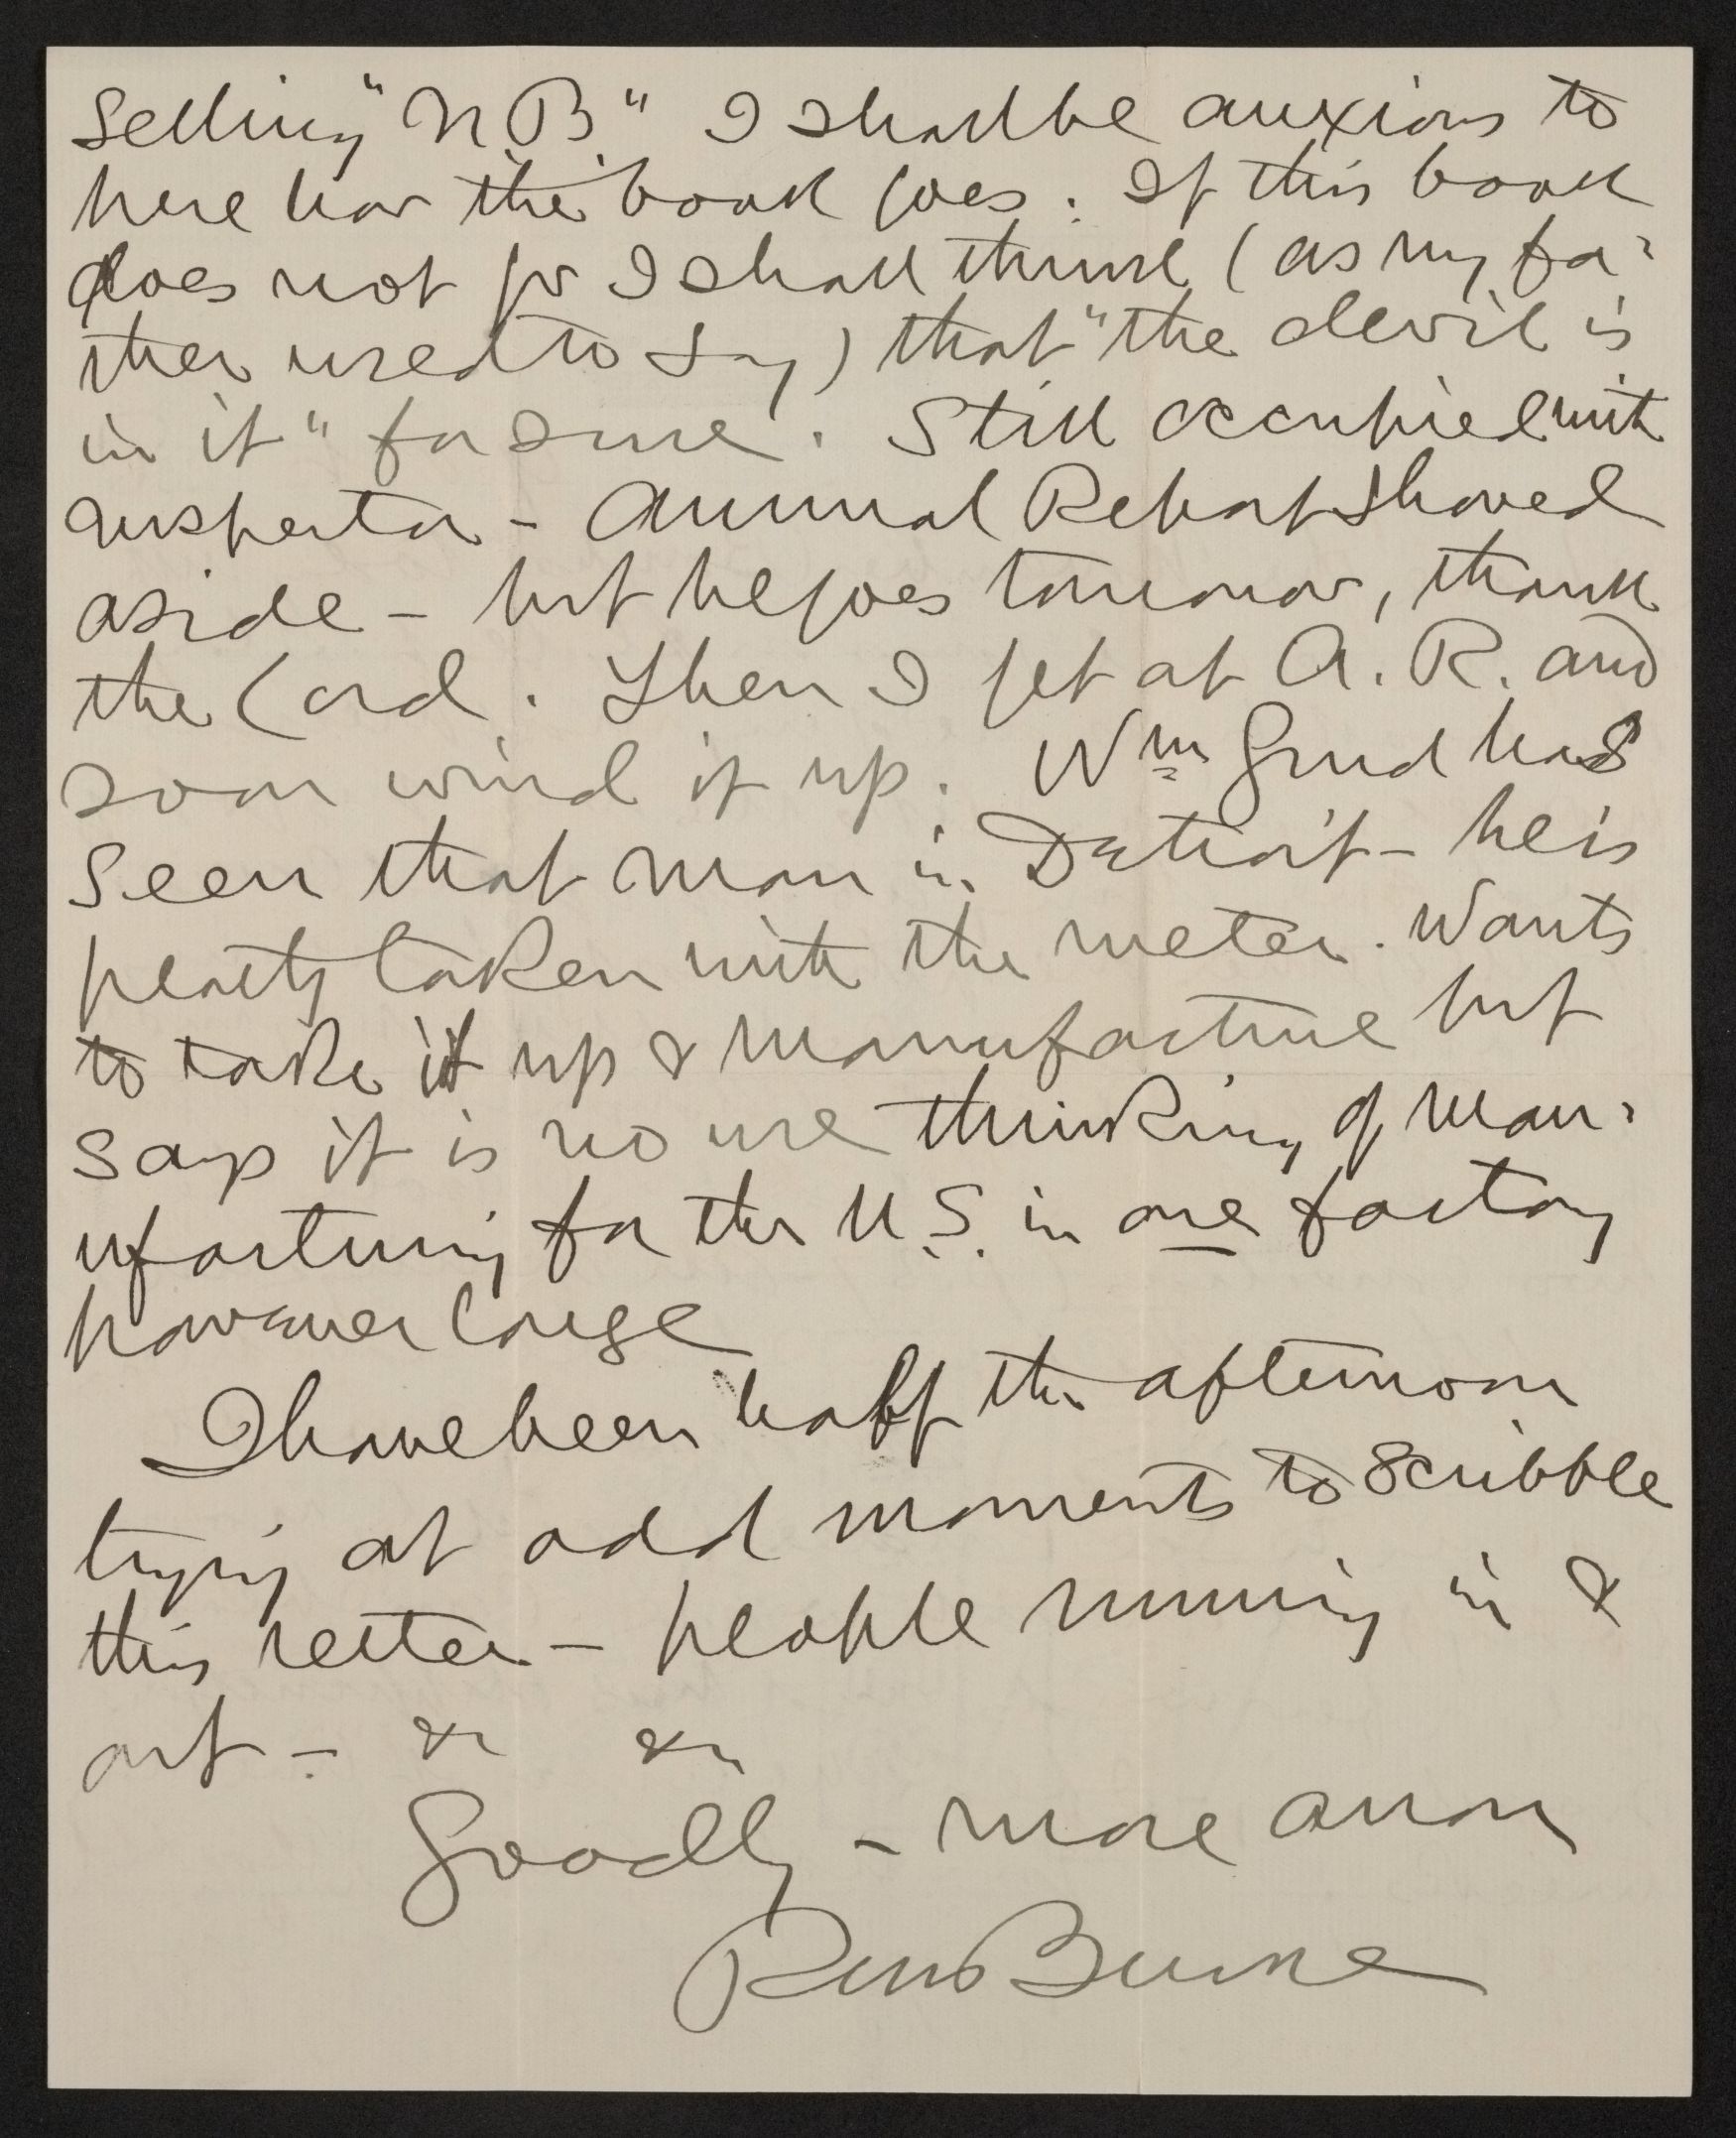 selling "N B" I shall be anxious to
here how the book goes. If this book
does not go I shall think (as my fa-
ther used to say) that "the devil is
in it" for sure. Still occupied with
inspector - Annual Report shoved
aside - but he goes tomorrow, thank
the Lord. Then I get at A. R. and
soon wind it up. Wm Gurd has
seen that man in Detroit - he is
pearty taken with the meter. Wants
to take it up & manufacture but
says it is no use thinking of man-
ufacturing for the U.S. in one factory
however large
I have been half the afternoon
trying at odd moments to scribble
this letter - people running in &
out - &c &c
Goodby - more anon
RM Bucke